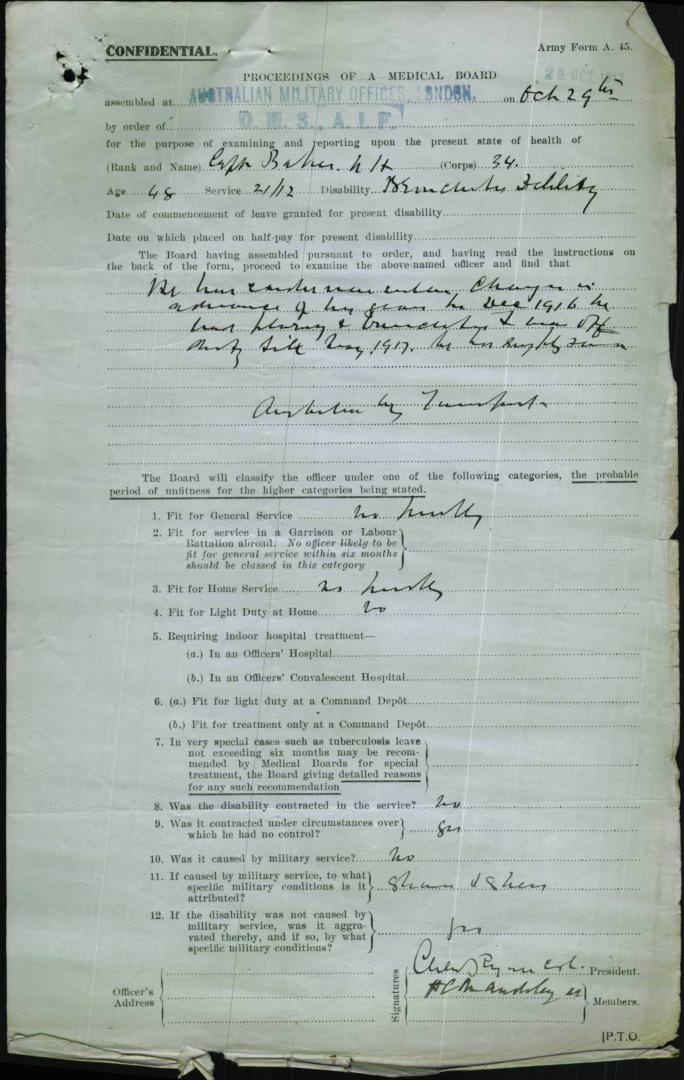 CONFIDENTIAL.
Army Form A. 45.
PROCEEDINGS OF A MEDICAL BOARD
29 OCT
assembled at AUSTRALIAN MILITARY OFFICES, LONDON. on Oct 29th
by order of D.M.S., A.I.F.
for the purpose of examining and reporting upon the present state of health of
(Rank and Name) Capt Baker (Corps) 34.
Age 48 Service 21/12 Disability Debility
Date of commencement of leave granted for present disability
Date on which placed on half-pay for present disability
The Board having assembled pursuant to order, and having read the instructions on
the back of the form, proceed to examine the above-named officer and find that
He has changes in
advance of his years In Dec 1916 he
had & was off
duty till May 1917. he has
Australia by Transport
The Board will classify the officer under one of the following categories, the probable
period of unfitness for the higher categories being stated.
1. Fit for General Service no
2. Fit for service in a Garrison or Labour
Battalion abroad. No officer likely to be
fit for general service within six months
should be classed in this category
3. Fit for Home Service no
4. Fit for Light Duty at Home no
5. Requiring indoor hospital treatment—
(a.) In an Officers' Hospital
(b.) In an Officers' Convalescent Hospital
6. (a.) Fit for light duty at a Command Depôt
(b.) Fit for treatment only at a Command Depôt
7. In very special cases such as tuberculosis leave
not exceeding six months may be recom-
mended by Medical Boards for special
treatment, the Board giving detailed reasons
for any such recommendation
8. Was the disability contracted in the service? no
9. Was it contracted under circumstances over
which he had no control? yes
10. Was it caused by military service? No
11. If caused by military service, to what
specific military conditions is it
attributed?
12. If the disability was not caused by
military service, was it aggra-
vated thereby, and if so, by what
specific military conditions?
yes
Officer's
Address
Signatures
President.
Members.
[P.T.O.